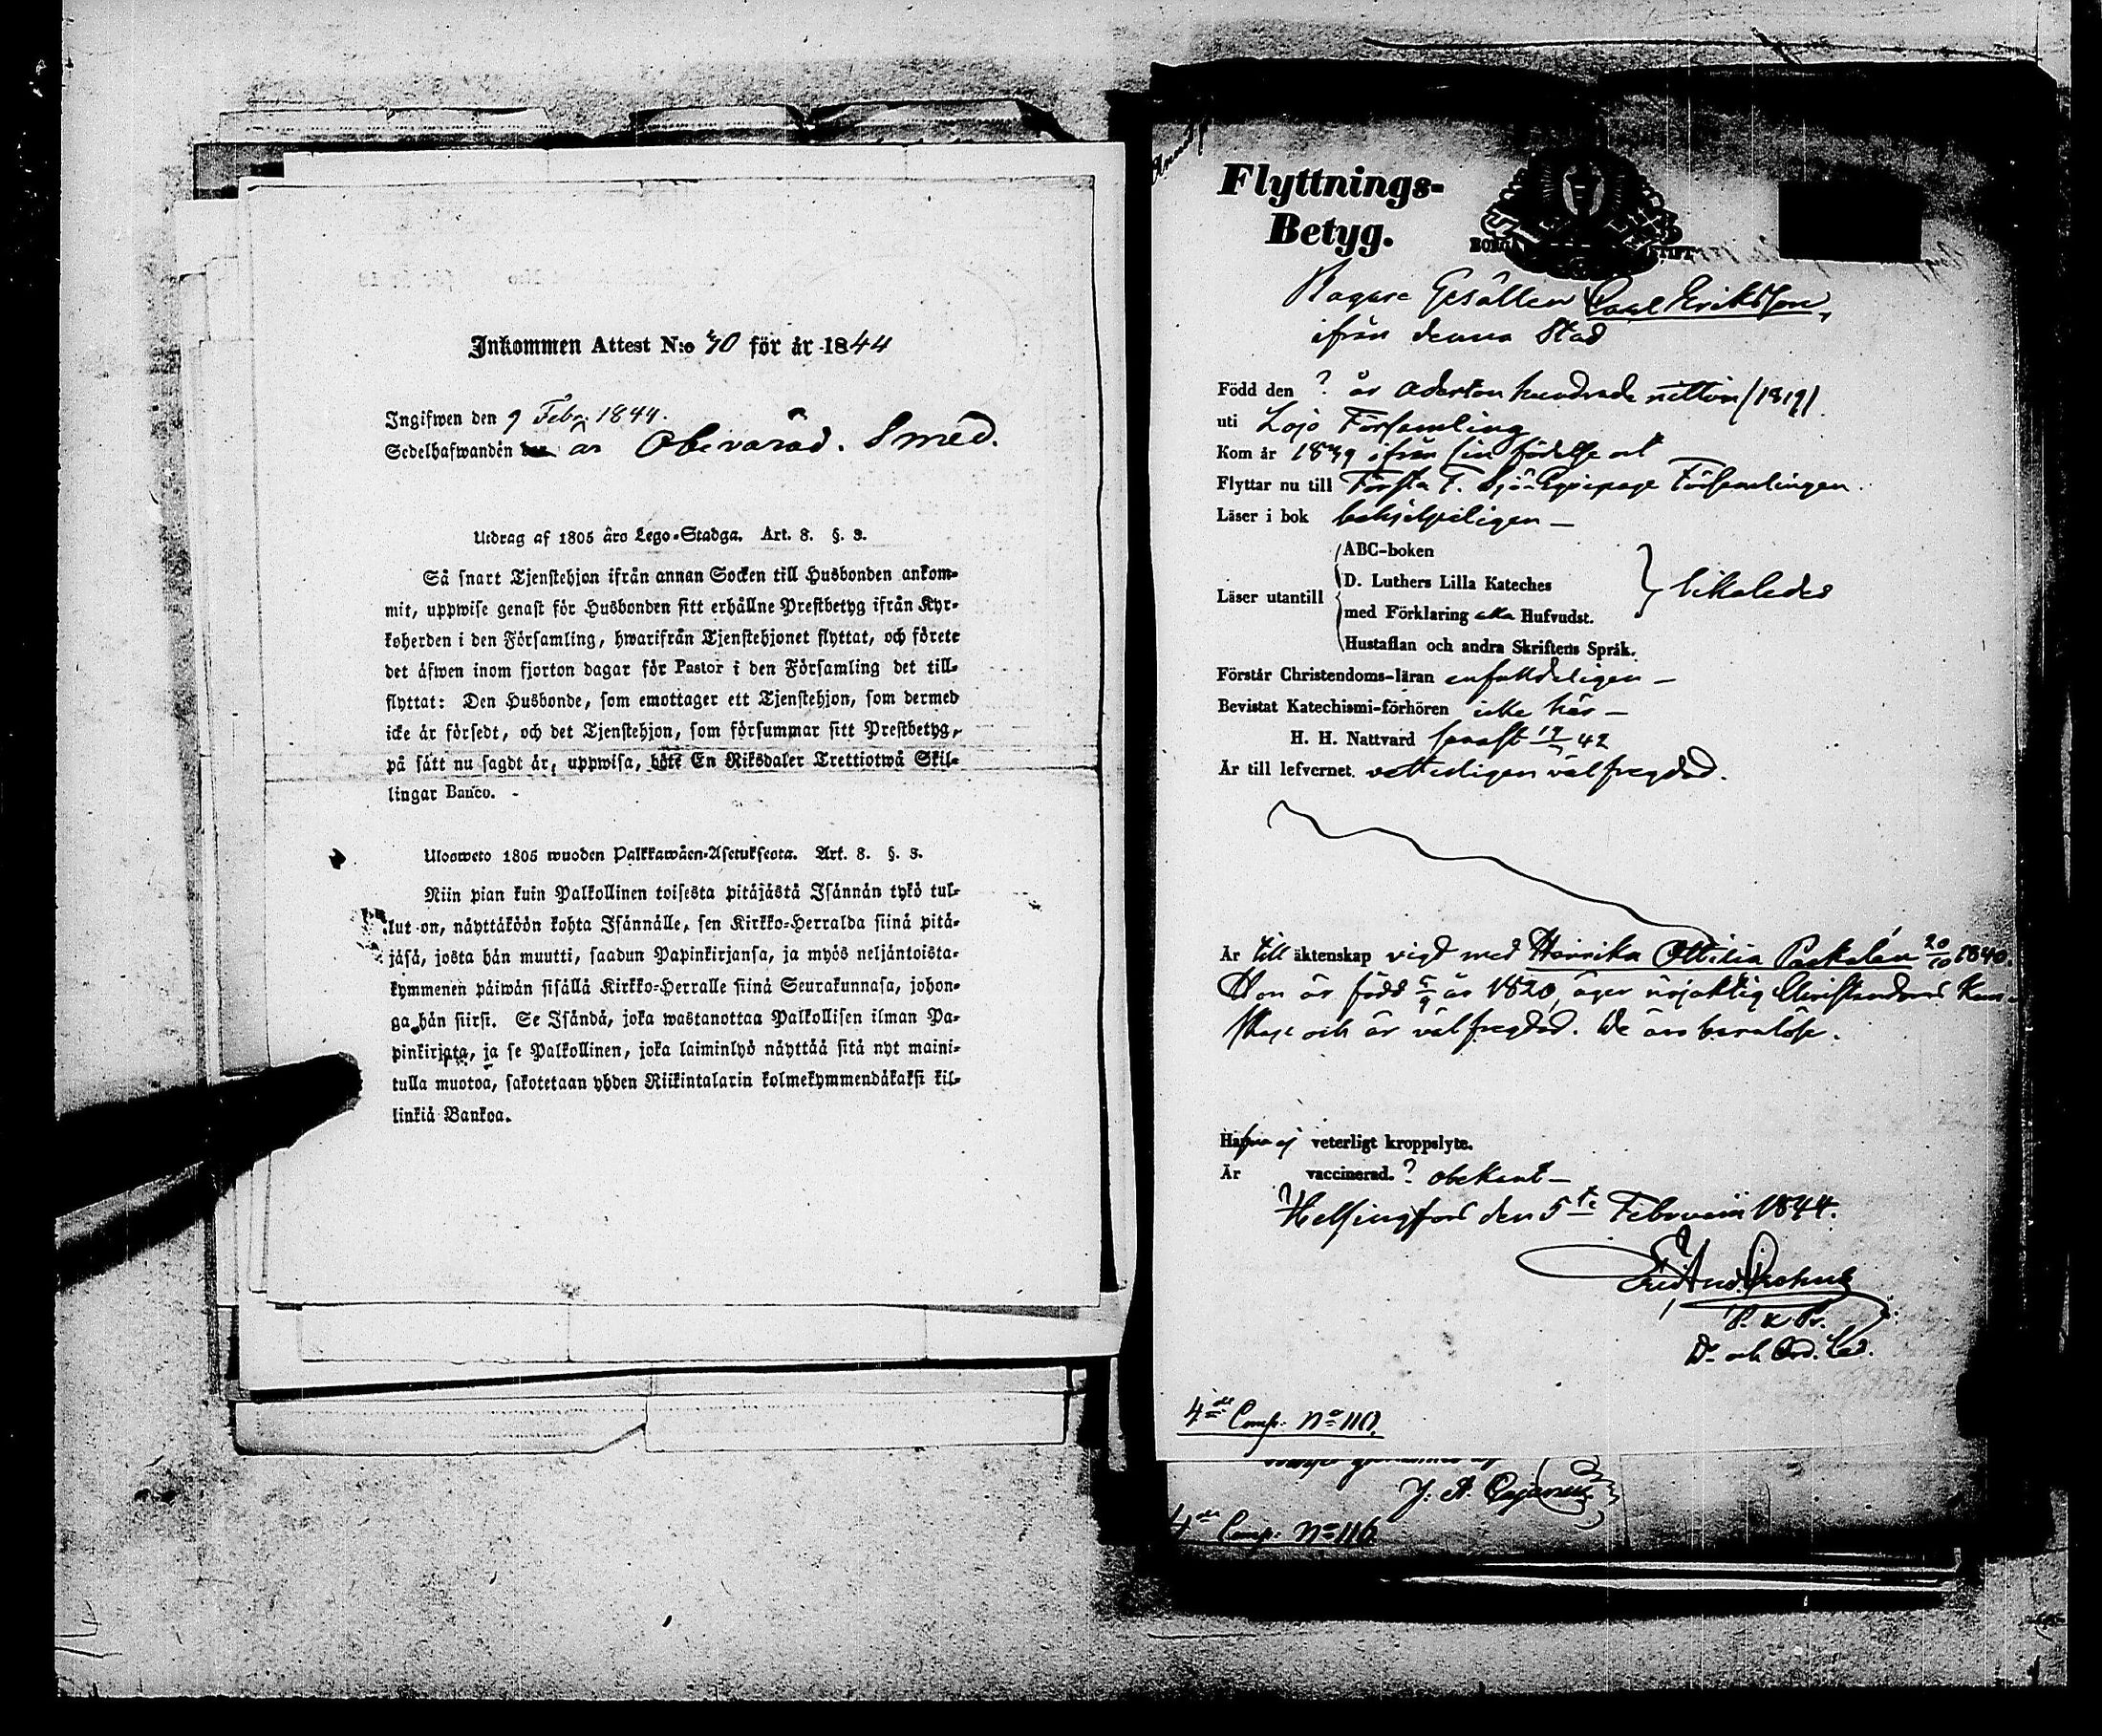 Inkommen Attest N:o 70 för år 1844
Ingifwen den 9 Febr. 1844.
Sedelhafwanden är Obevaräd. Smed.
Utdrag af 1805 års Lego-Stadga. Art. 8. §. 3.
Så snart Tjenstehjon ifrån annan Socken till Husbonden ankom-
mit, uppwise genast för Husbonden sitt erhållne Prestbetyg ifrån Kyr-
koherden i den Församling, hwarifrån Tjenstehjonet flyttat, och förete
det äfwen inom fjorton dagar för Pastor i den Församling det till-
flyttat: Den Husbonde, som emottager ett Tjenstehjon, som dermed
icke är försedt, och det Tjenstehjon, som försummar sitt Prestbetyg,
på sätt nu sagdt är, uppwisa, böte En Riksdaler Trettiotwå Skil-
lingar Banco.
Ulosweto 1805 wuoden Palkkawäen-Asetuksesta. Art. 8. §. 3.
Niin pian kuin Palkollinen toisesta pitäjästä Isännän tykö tul-
lut on, näyttäköön kohta Isännälle, sen Kirkko-Herralda siinä pitä-
jäsä, josta hän muutti, saadun Papinkirjansa, ja myös neljäntoista-
kymmenen päiwän sisällä Kirkko-Herralle siinä Seurakunnasa, johon-
ga hän siirsi. Se Isändä, joka wastanottaa Palkollisen ilman Pa-
pinkirjata, ja se Palkollinen, joka laiminlyö näyttää sitä nyt maini-
tulla muotoa, sakotetaan yhden Riikintalarin kolmekymmendäkaksi kil-
linkiä Bankoa.
Flyttnings-
Betyg.
BORGÅ STIFT
Bagare Gesällen Carl Eriksson,
ifrån denna Stad
Född den ? år adertonhundrade nitton (1819)
uti Lojo Församling
Kom år 1839 ifrån sin födelse ort
Flyttar nu till Första F. Sjö-Equipage Församlingen.
Läser i bok behjelpeligen —
Läser utantill
ABC-boken
D. Luthers Lilla Kateches
med Förklaring Hufvudst.
Hustaflan och andra Skriftens Språk.
likaledes
Förstår Christendoms-läran enfaldeligen —
Bevistat Katechismi-förhören icke här —
H. H. Nattvard senast 17/7 42
Är till lefvernet vetterligen välfregdad.
Är till äktenskap vigd med Henrika Ottilia 20/10 1840.
Hon är född 5/9 år 1820, äger nöjaktig Christendoms Kun-
skap och är välfregdad. De äro barnlöse.
Hafva ej veterligt kroppslyte.
Är vaccinerad. ? obekant —
Helsingfors den 5te Februarii 1844.
D. och Ord. Led.
4de Comp: No 110.
4de Comp: No 116